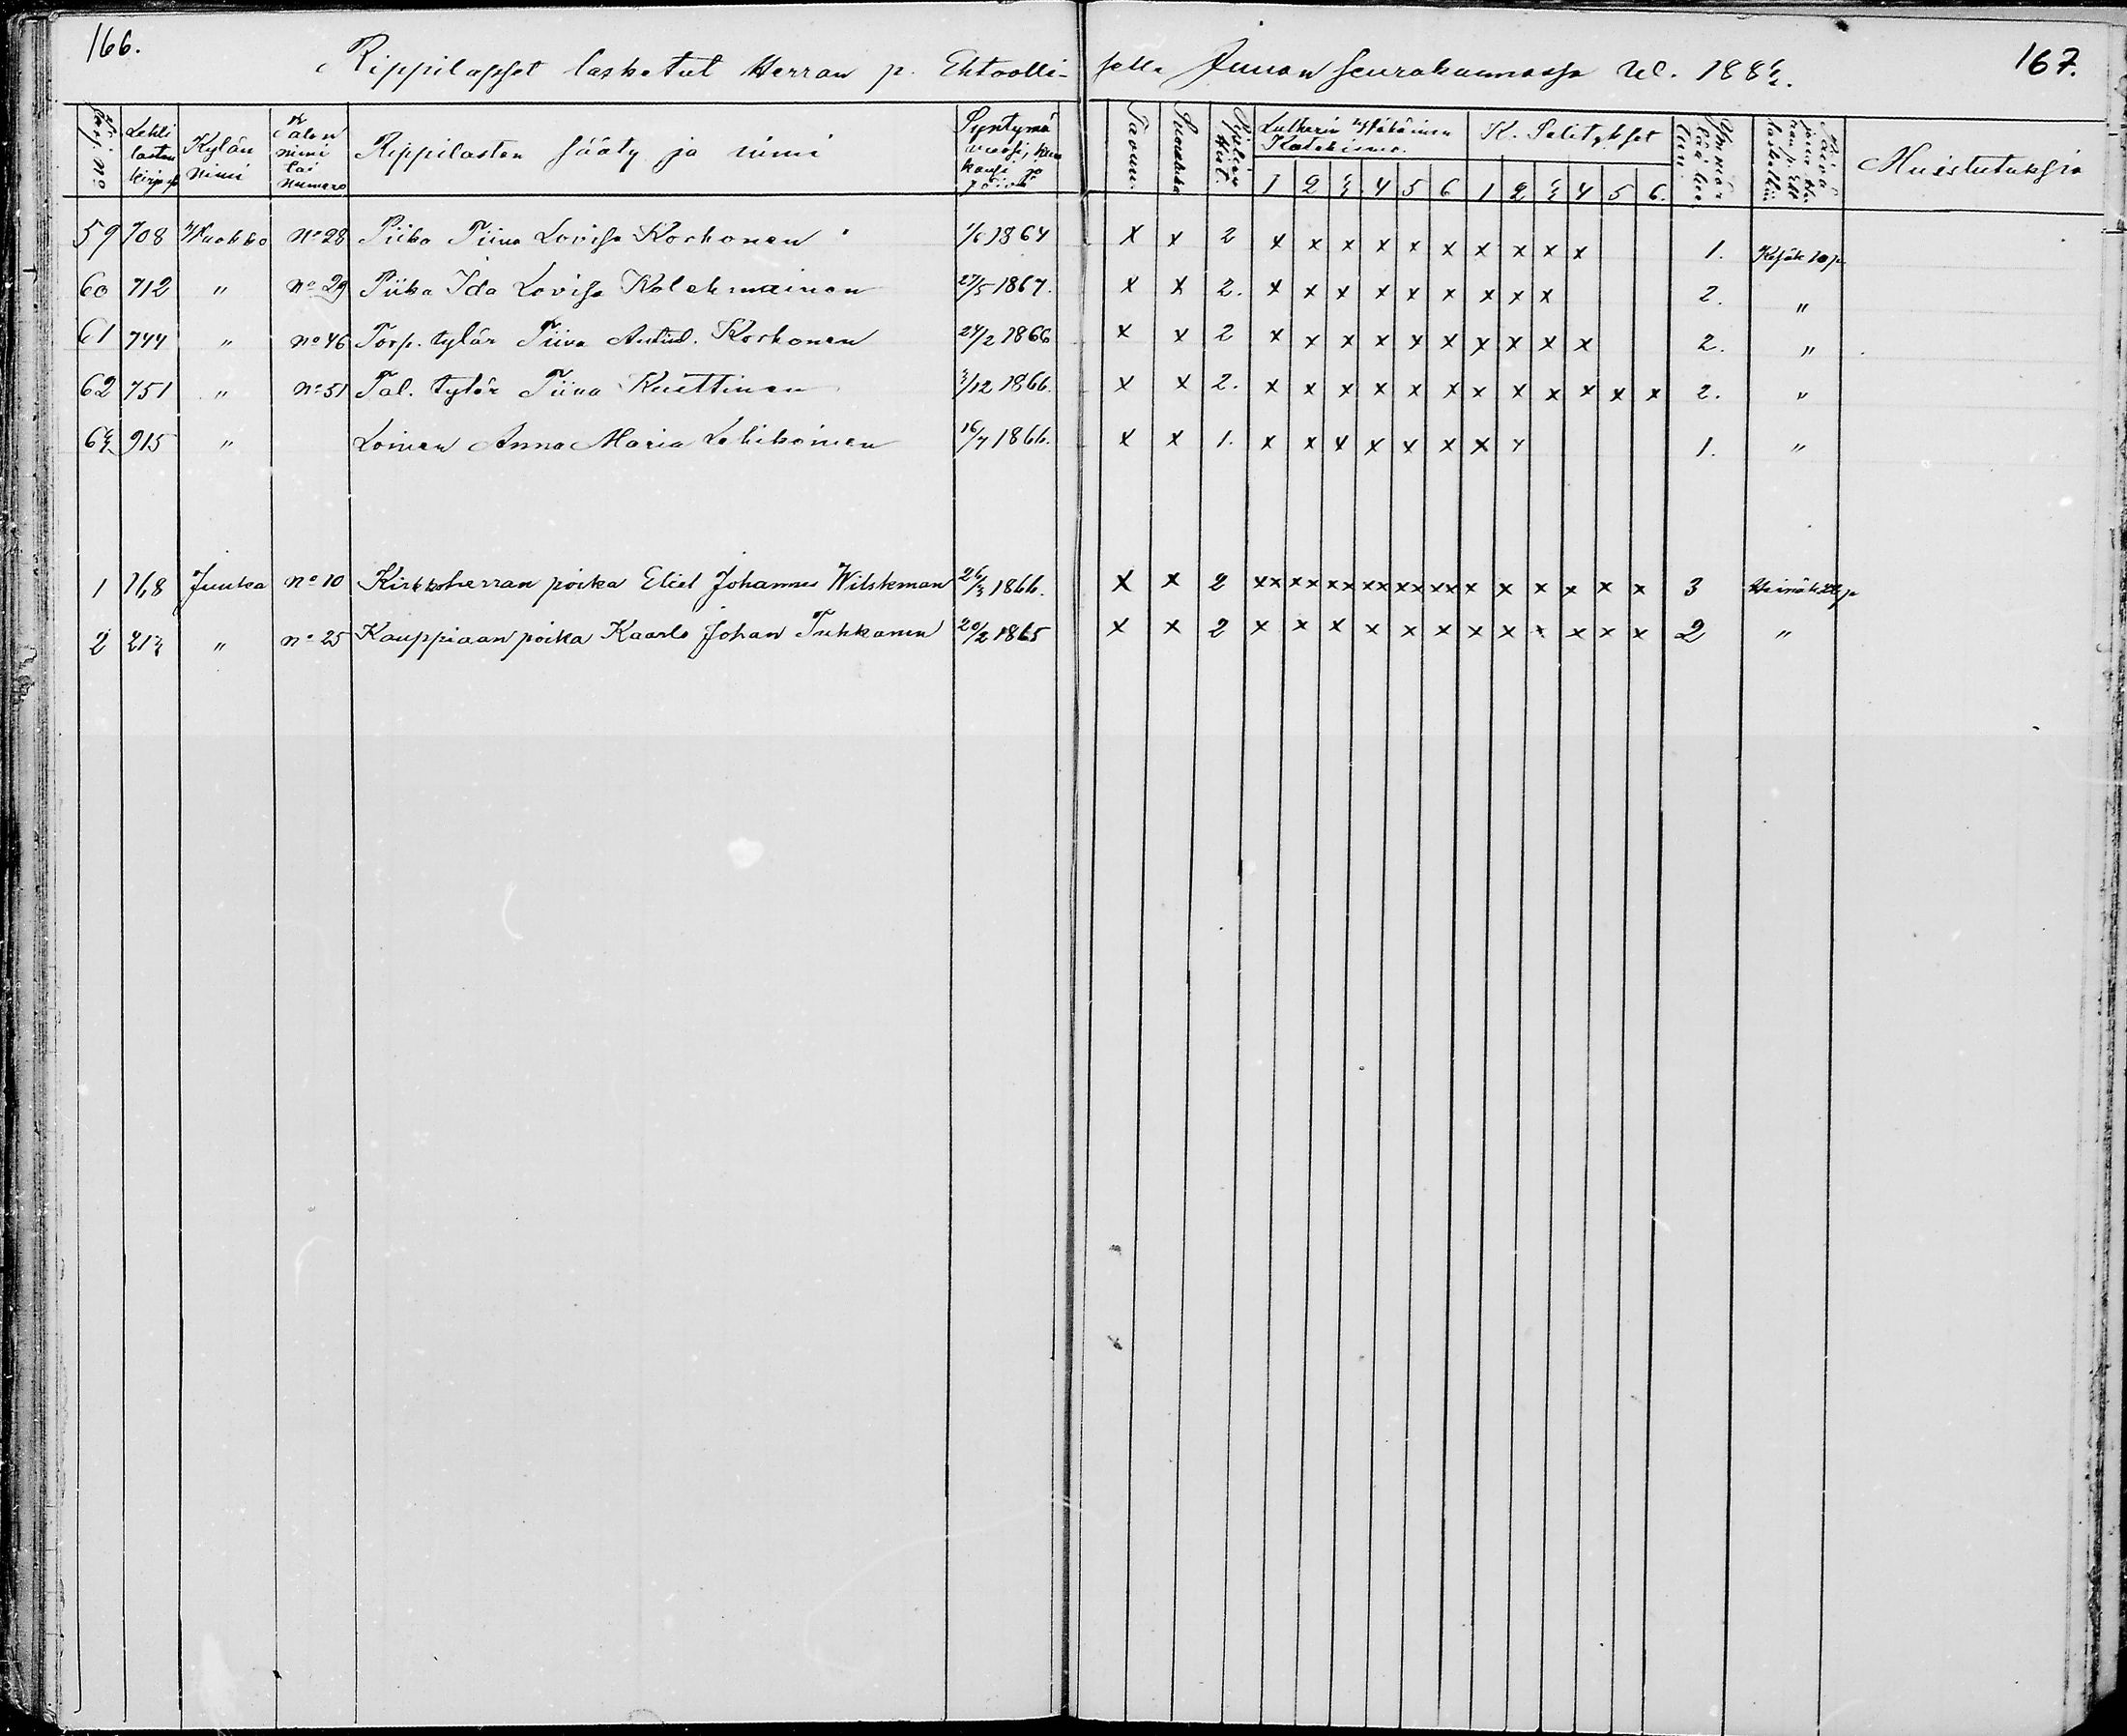 166.
Rippilapset lasketut Herran p. Ehtoolli-
selle Juuan seurakunnassa v. 1883.
167.
Lehti lasten kirjassa
Kylän nimi
Talon nimi tai numero
Rippilasten sääty ja nimi
Syntymä vuosi, kuukausi ja päivä
Tavom.
Sisäluku
Piplian Hist.
Lutherin Wähäinen Katekismo.
K. Selitykset
1 2 3 4 5 6 1 2 3 4 5 6.
Muistutuksia
59 708 Wuokko No 28 Piika Tiina Lovisa Korhonen 1/6 1864 x x 2 x x x x x x x x x x 1. Kesäk 10 p
60 712 " No 29 Piika Ida Lovisa Kolehmainen 27/5 1867. x x 2. x x x x x x x x x 2. "
61 744 " No 46 Torp. tytär Tiina Korhonen 24/2 1866 x x 2 x x x x x x x x x x 2. "
62 751 " No 51 Tal. tytär Tiina Kuittinen 3/12 1866. x x 2. x x x x x x x x x x x x 2. "
63 915 " Loinen Anna Maria Lehikoinen 16/7 1866. x x 1. x x x x x x x x 1. "
1 768 Juuka No 10 Kirkkoherran poika Eliel Johannes Wilskman 26/3 1866. x x 2 xx xx xx xx xx xx x x x x x x 3 Heinäk 22 p
2 213 " No 25 Kauppiaan poika Kaarlo Johan Tuhkanen 20/2 1865 x x 2 x x x x x x x x x x x x 2 "